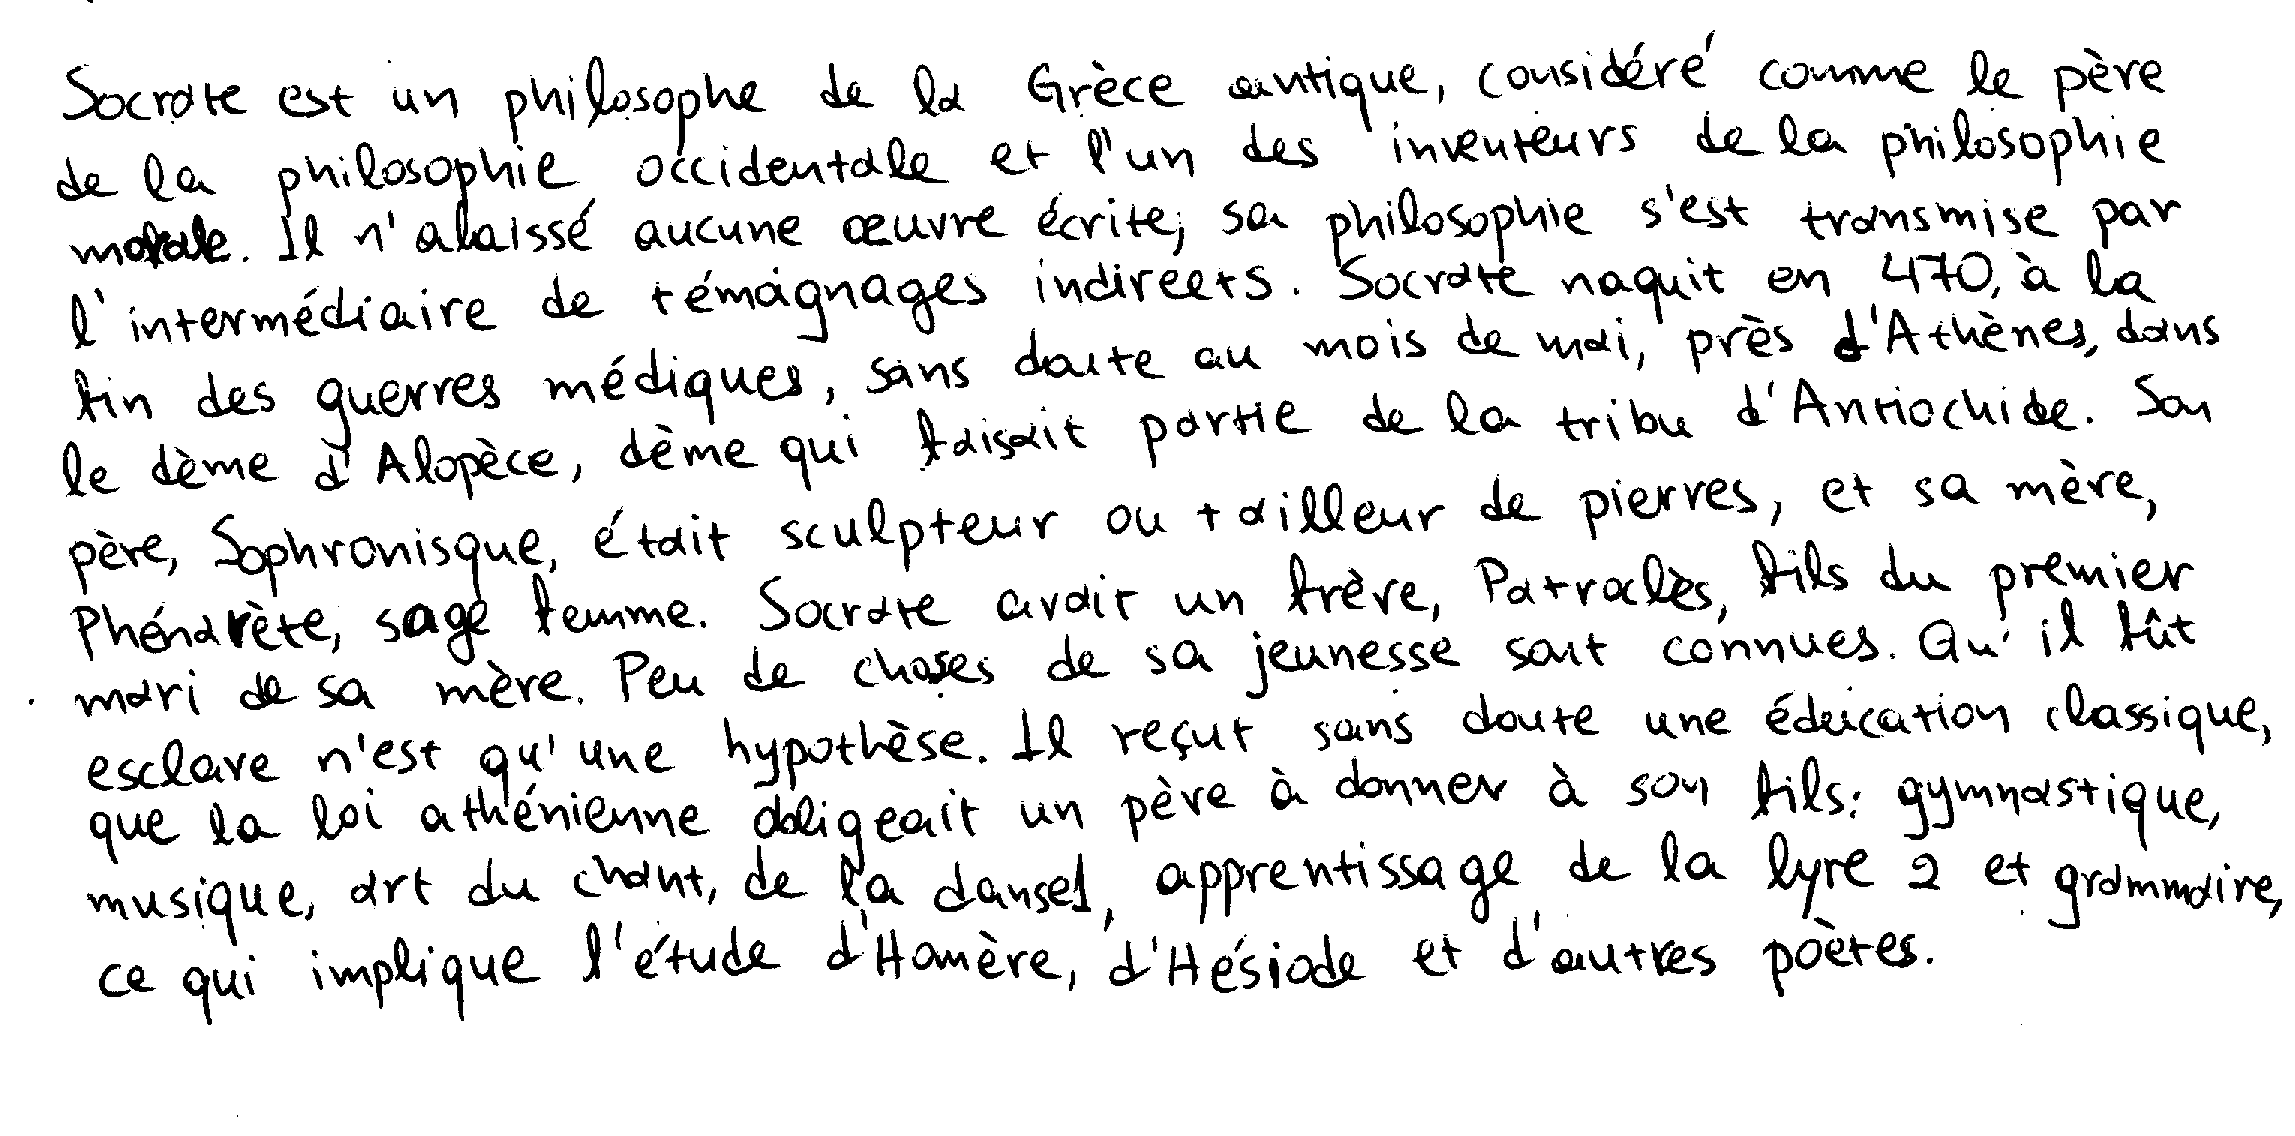 Socrate est un philosophe de la Grèce antique, considéré comme le père
de la philosophie occidentale et l'un des inventeurs de la philosophie
morale. Il n'a laissé aucune œuvre écrite; sa philosophie s'est transmise par
l'intermédiaire de témoignages indirects. Socrate naquit en 470, à la
fin des guerres médiques, sans doute au mois de mai, près d'Athènes, dans
le dème d'Alopèce, dème qui faisait partie de la tribu d'Antiochide. Son
père, Sophronisque, était sculpteur ou tailleur de pierres, et sa mère,
Phénarète, sage femme. Socrate avait un frère, Patroclès, fils du premier
mari de sa mère. Peu de choses de sa jeunesse sont connues. Qu'il fût
esclave n'est qu'une hypothèse. Il reçut sans doute une éducation classique,
que la loi athénienne obligeait un père à donner à son fils: gymnastique,
musique, art du chant, de la danse1, apprentissage de la lyre 2 et grammaire,
ce qui implique l'étude d'Homère, d'Hésiode et d'autres poètes.